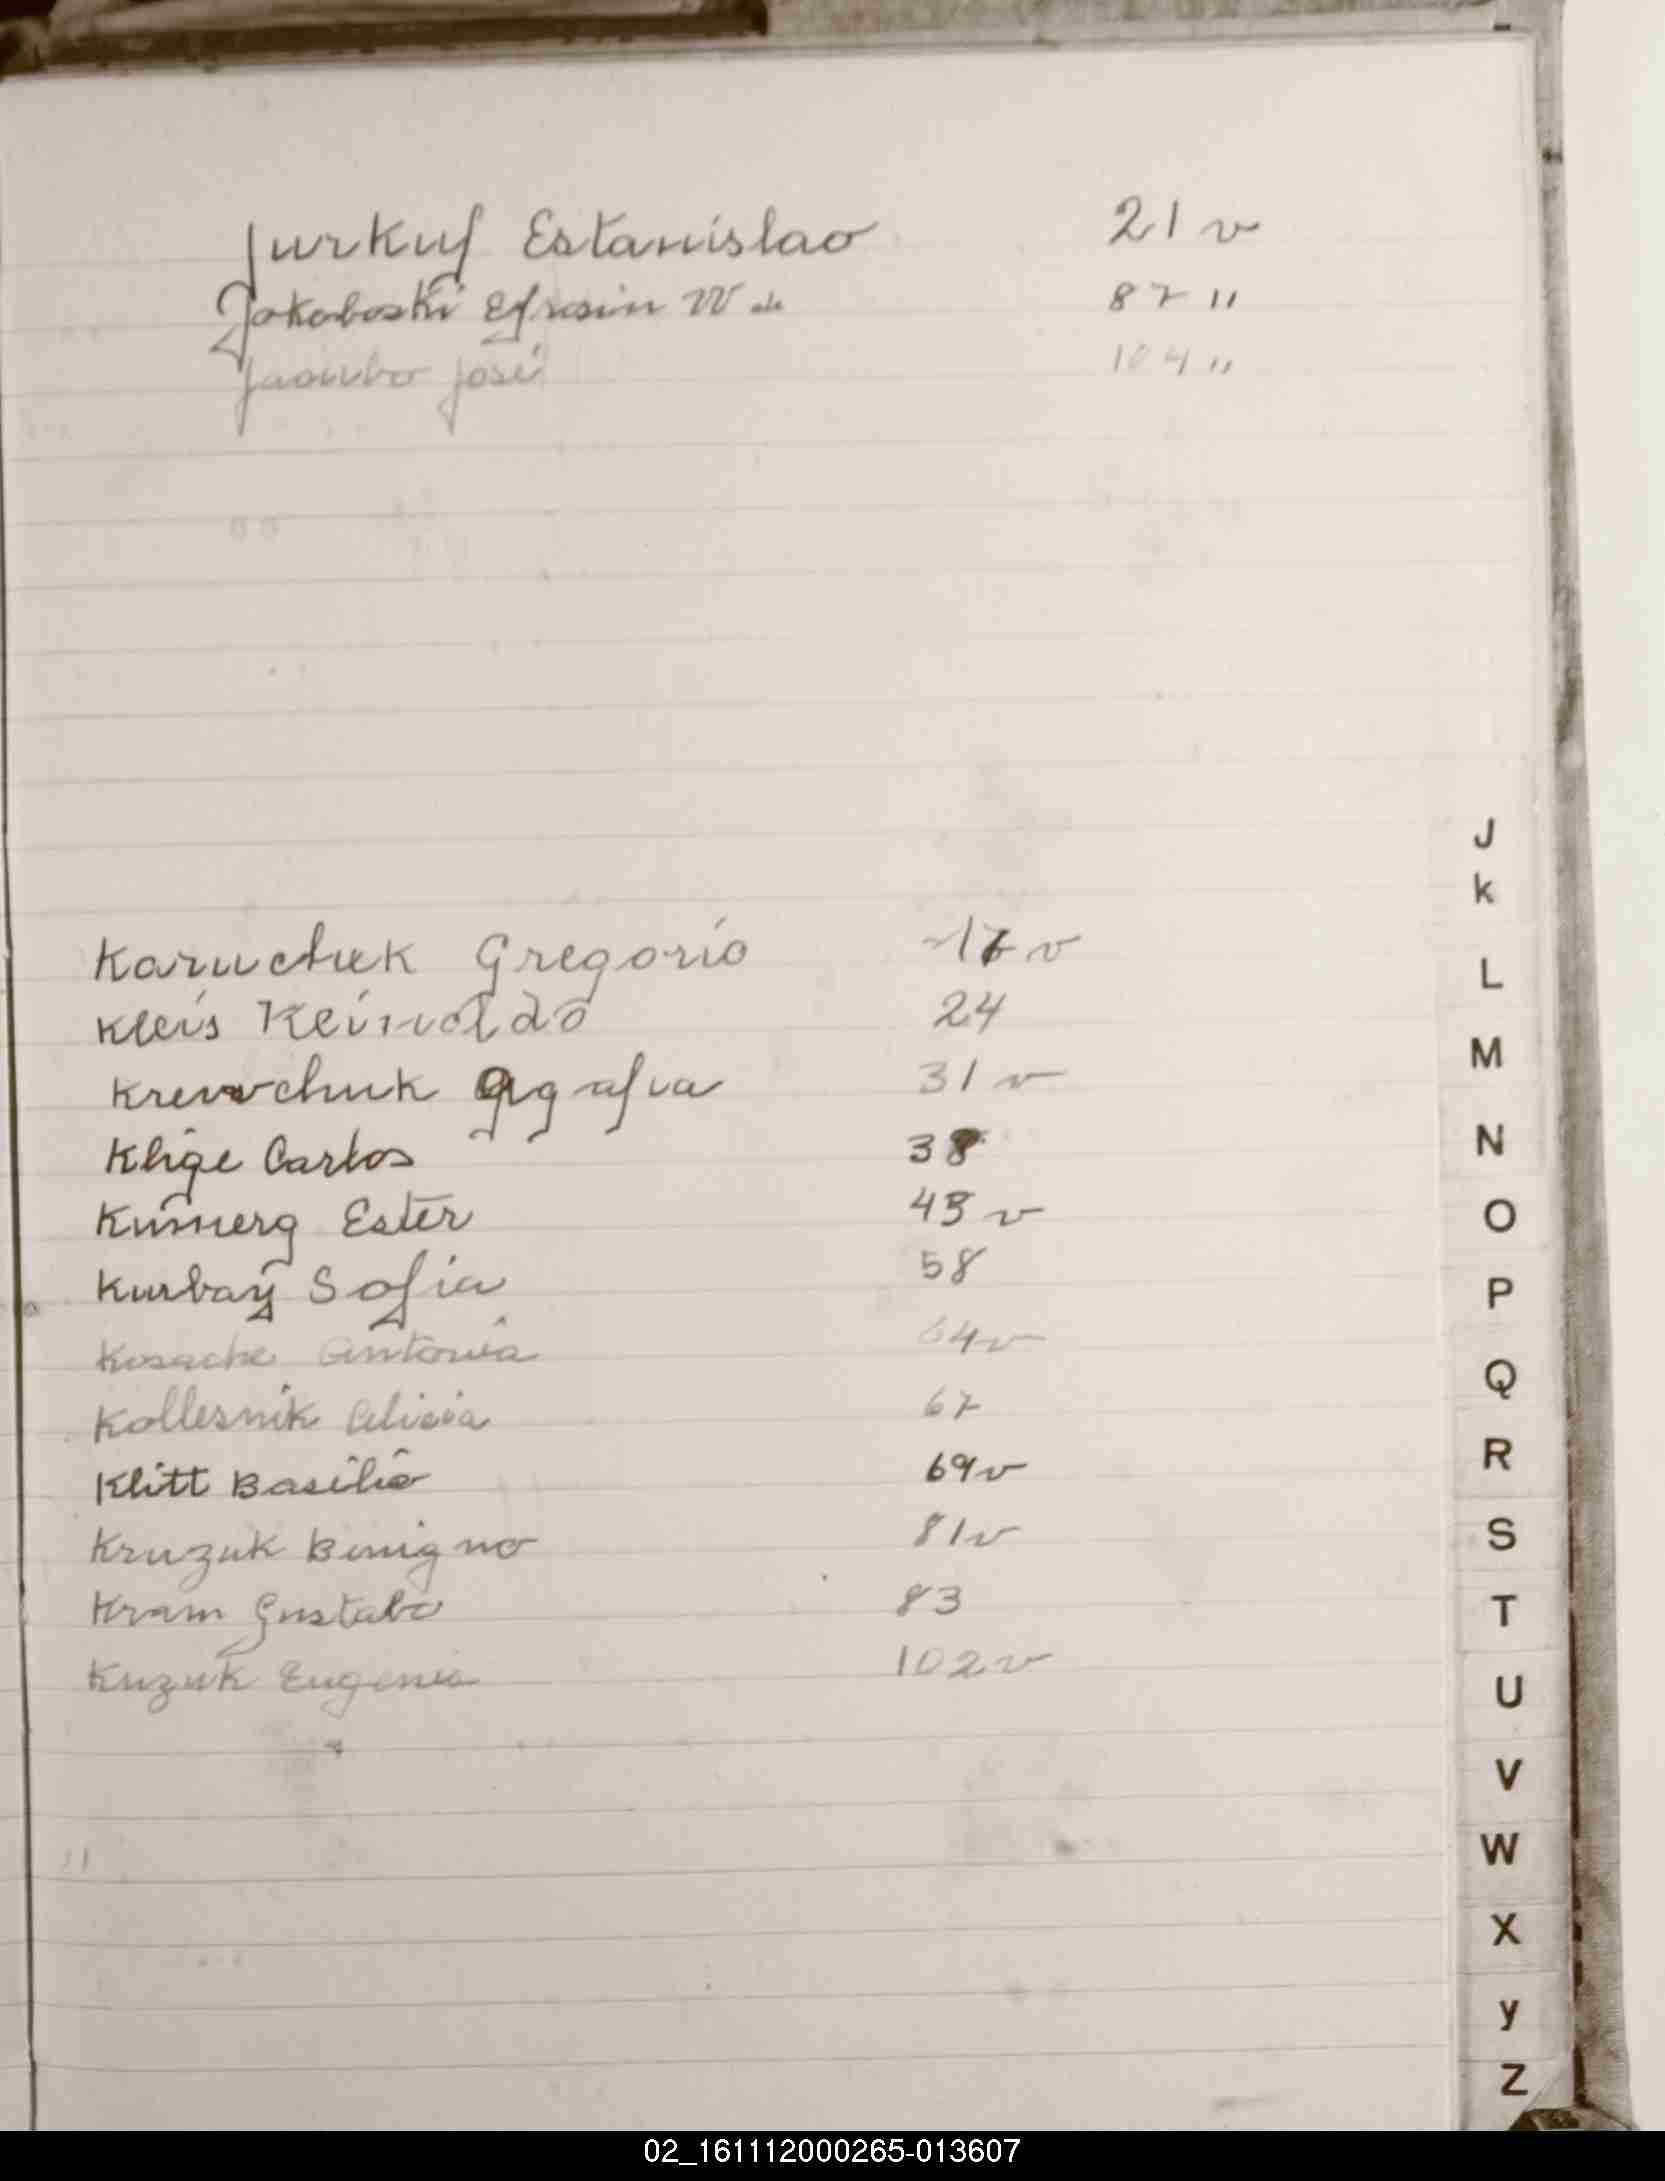 Jurkuf Estanislao 21 v
Jakoboski Efrosin W de 87 "
José 104 "
J
K
Karuchek Gregorio 17 v
L
Kleis Reinoldo 24
M
Krewchuk Agafia 31 v
N
Klige Carlos 38
Kumerg Ester 43 v
O
Kurbay Sofia 58
P
Kosache Antonia 64 v
Q
Kollesnik Alicia 67
R
Klitt Basilio 69 v
Kruzuk Benigno 81 v
S
Kram Gustabo 83
T
Kuzuk Eugenia 102 v
U
V
W
X
y
Z
02_161112000265-013607